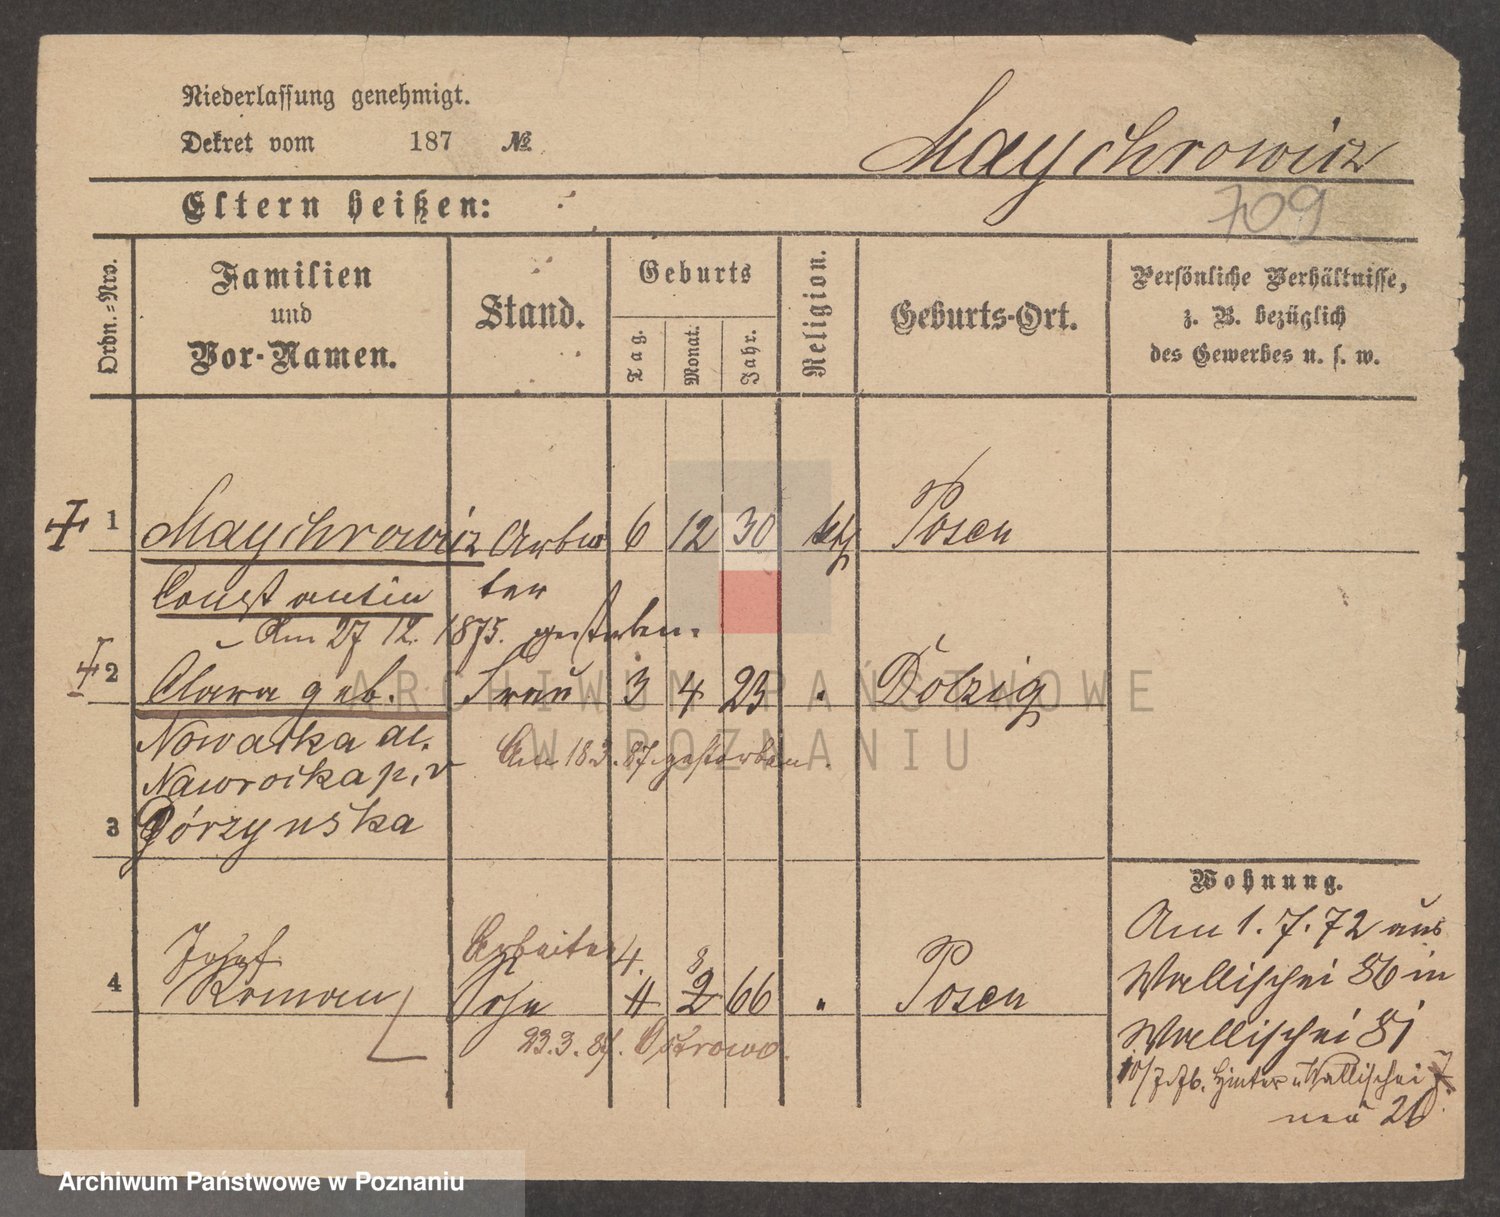 Niederlassung genehmigt.
Dekret vom 187 №
Maychrowicz
709
Eltern heißen:
Ordn.-Nro.
Familien
und
Vor-Namen.
Stand.
Geburts
Tag.
Monat.
Jahr.
Religion.
Geburts-Ort.
Persönliche Verhältnisse,
z. B. bezüglich
des Gewerbes u. s. w.
1 Maychrowicz Arbei 6 12 30 kth Posen
Constantin ter
Am 27 12. 1875. gestorben.
2 Clara geb. Frau 3 4 23 " Dolzig
Nowacka al.
Nawrocka p. v
Am 18 3. 87. gestorben.
3 Górzynska
Wohnung.
Am 1. 7. 72 aus
Wallischei 86 in
Wallischei 81
10/7.76. Hinter Wallischei 7
neu 26
Josef Arbeiter 4. 8
4 Roman Sohn 4 2 66 " Posen
23.3.87. Ostrowo.
ARCHIWUM PAŃSTWOWE
W POZNANIU
Archiwum Państwowe w Poznaniu